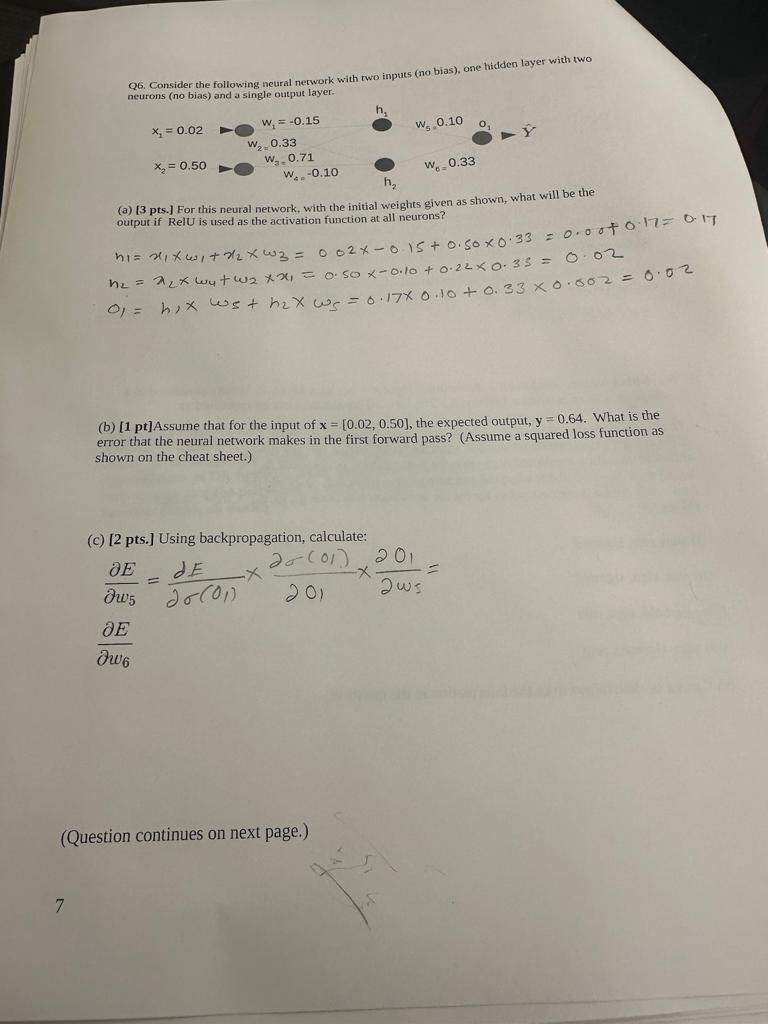 Q6. Consider the following neural network with two inputs (no bias), one hidden layer with two
neurons (no bias) and a single output layer.
h₁
x₁ = 0.02 w₁ = -0.15 w₅ = 0.10 o₁ Ŷ
w₂ = 0.33
x₂ = 0.50 w₃ = 0.71 w₆ = 0.33
w₄ = -0.10
h₂
(a) [3 pts.] For this neural network, with the initial weights given as shown, what will be the
output if RelU is used as the activation function at all neurons?
h1 = x1 x w1 + x2 x w3 = 0.02x-0.15 + 0.50x0.33 = 0.00+0.17 = 0.17
h2 = x2 x w4 + w2 x x1 = 0.50 x-0.10 + 0.22x0.33 = 0.02
O1 = h1x w5 + h2 x w5 = 0.17x0.10 + 0.33 x 0.002 = 0.02
(b) [1 pt]Assume that for the input of x = [0.02, 0.50], the expected output, y = 0.64. What is the
error that the neural network makes in the first forward pass? (Assume a squared loss function as
shown on the cheat sheet.)
(c) [2 pts.] Using backpropagation, calculate:
∂E/∂w₅ = ∂E/∂σ(O1) x ∂σ(O1)/∂O1 x ∂O1/∂w5 =
∂E/∂w₆
(Question continues on next page.)
7